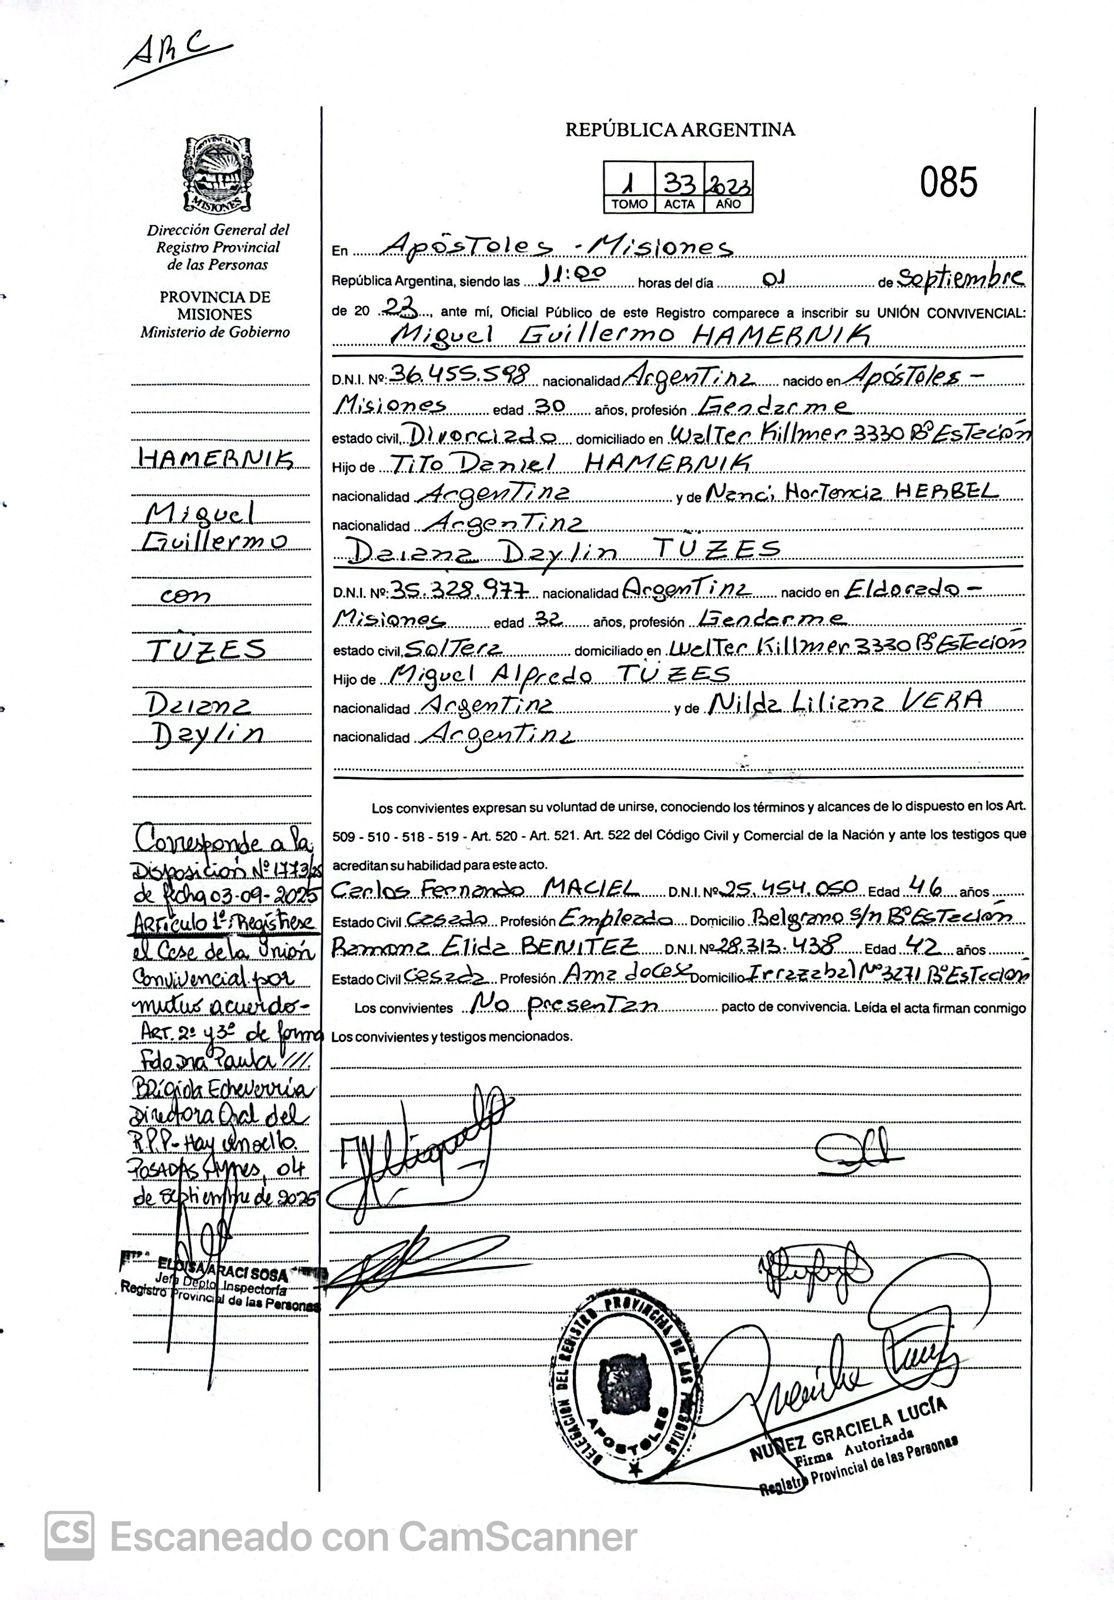 ARC
PROVINCIA DE
MISIONES
Dirección General del
Registro Provincial
de las Personas
PROVINCIA DE
MISIONES
Ministerio de Gobierno
HAMERNIK
Miguel
Guillermo
con
TÜZES
Daiana
Daylin
Corresponde a la
Disposición Nº 1773/25
de fecha 03-09-2025
ARTículo 1º: Regístrese
el Cese de la Unión
Convivencial por
mutuo acuerdo-
ART. 2º y 3º de forma
Fdo Dra Paula ////
Brígida Echeverría
Directora Gral del
R.P.P- Hay un sello.
POSADAS, Mnes, 04
de septiembre de 2025
ELOISA ARACI SOSA
Jefa Depto. Inspectoría
Registro Provincial de las Personas
REPÚBLICA ARGENTINA
1 33 2023
TOMO ACTA AÑO
085
En Apóstoles - Misiones
República Argentina, siendo las 11:00 horas del día 01 de Septiembre
de 20 23, ante mí, Oficial Público de este Registro comparece a inscribir su UNIÓN CONVIVENCIAL:
Miguel Guillermo HAMERNIK
D.N.I. Nº: 36.455.598 nacionalidad Argentina nacido en Apóstoles -
Misiones edad 30 años, profesión Gendarme
estado civil, Divorciado domiciliado en Walter Killmer 3330 Bº Estación
Hijo de Tito Daniel HAMERNIK
nacionalidad Argentina y de Nanci Hortencia HERBEL
nacionalidad Argentina
Daiana Daylin TÜZES
D.N.I. Nº: 35.328.977 nacionalidad Argentina nacido en Eldorado -
Misiones edad 32 años, profesión Gendarme
estado civil, Soltera domiciliado en Walter Killmer 3330 Bº Estación
Hijo de Miguel Alfredo TÜZES
nacionalidad Argentina y de Nilda Liliana VERA
nacionalidad Argentina
Los convivientes expresan su voluntad de unirse, conociendo los términos y alcances de lo dispuesto en los Art.
509 - 510 - 518 - 519 - Art. 520 - Art. 521. Art. 522 del Código Civil y Comercial de la Nación y ante los testigos que
acreditan su habilidad para este acto.
Carlos Fernando MACIEL D.N.I. Nº 25.454.050 Edad 46 años
Estado Civil Casado Profesión Empleado Domicilio Belgrano S/n Bº Estación
Ramona Elida BENITEZ D.N.I. Nº 28.313.438 Edad 42 años
Estado Civil Casada Profesión Ama de casa Domicilio Irrazabal Nº 3271 Bº Estación
Los convivientes No presentan pacto de convivencia. Leída el acta firman conmigo
Los convivientes y testigos mencionados.
DELEGACION DEL REGISTRO PROVINCIAL DE LAS PERSONAS
APOSTOLES
NUÑEZ GRACIELA LUCÍA
Firma Autorizada
Registro Provincial de las Personas
CS Escaneado con CamScanner